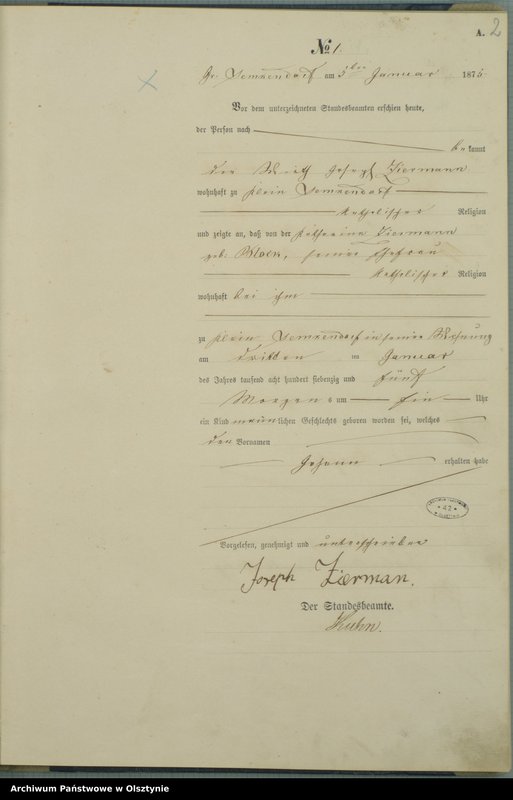 A. 2
No 1.
Gr. Lemkendorf am 5ten Januar 1875
Vor dem unterzeichneten Standesbeamten erschien heute,
der Person nach
bekannt
der Wirth Joseph Ziermann
wohnhaft zu Klein Lemkendorf
katholischer Religion
und zeigte an, daß von der Katharina Ziermann
geb. Block, seiner Ehefrau
katholischer Religion
wohnhaft bei ihm
zu Klein Lemkendorf in seiner Wohnung
am dritten ten Januar
des Jahres tausend acht hundert siebenzig und fünf
Morgens um ein Uhr
ein Kind männlichen Geschlechts geboren worden sei, welches
den Vornamen
Johann erhalten habe
* 42 *
Vorgelesen, genehmigt und unterschrieben
Joseph Zierman.
Der Standesbeamte.
Kuhn.
Archiwum Państwowe w Olsztynie